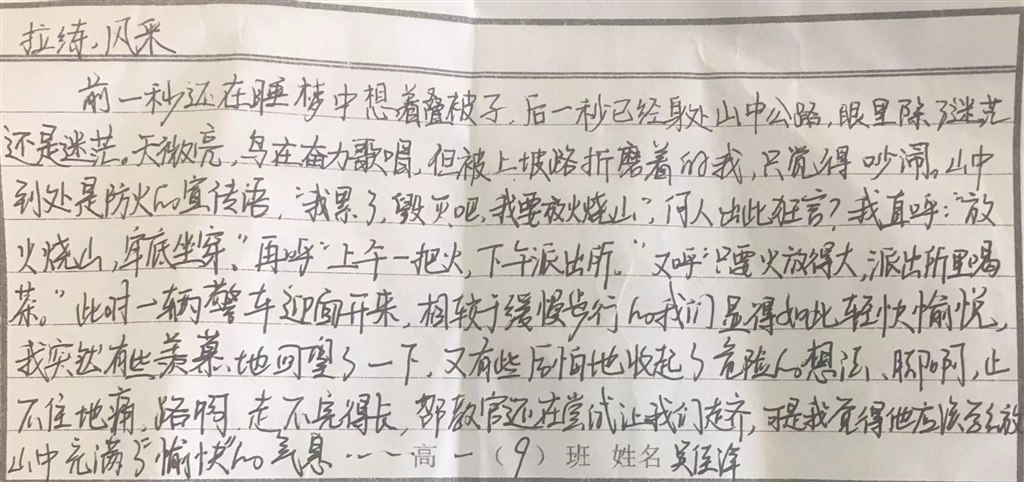 拉练风采
前一秒还在睡梦中想着叠被子,后一秒已经身处山中公路,眼里除了迷茫
还是迷茫。天微亮,鸟在奋力歌唱,但被上坡路折磨着的我,只觉得吵闹。山中
到处是防火的宣传语,“我累了,毁灭吧,我要放火烧山”,何人出此狂言?我直呼:“放
火烧山,牢底坐穿。”再呼“上午一把火,下午派出所。”又呼“只要火放得大,派出所里喝
茶。”此时一辆警车迎面开来,相较于缓慢步行的我们显得如此轻快愉悦,
我突然有些羡慕地回望了一下,又有些后怕地收起了危险的想法、脚啊,止
不住地痛,路啊,走不完得长,部教官还在尝试让我们走齐,可是我觉得他应该
山中充满了“愉快”的气息……高一(9)班 姓名 吴